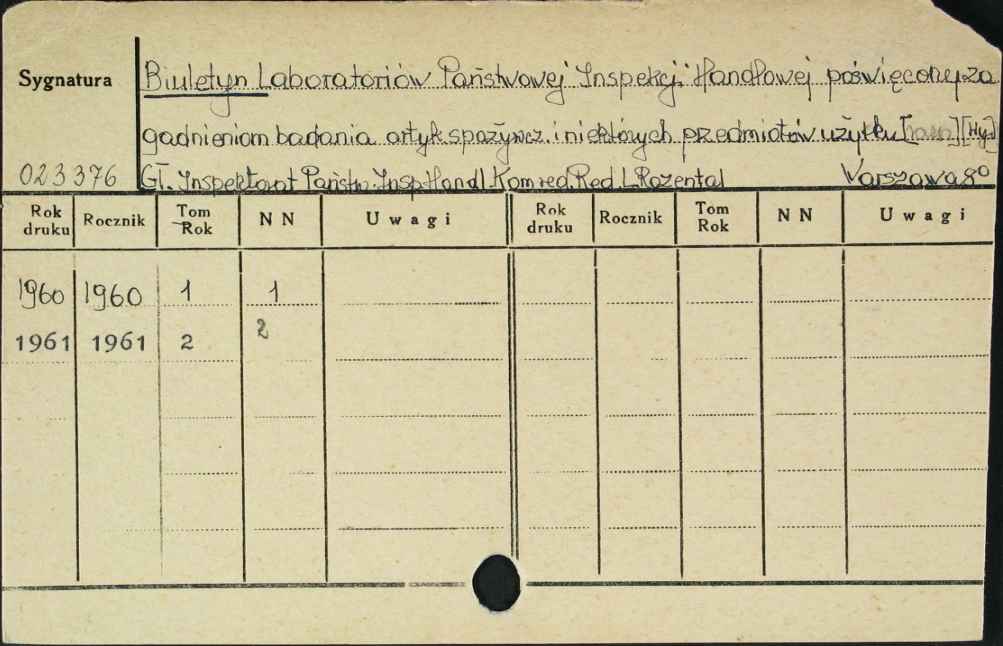 Sygnatura
Biuletyn Laboratoriów Państwowej Inspekcji Handlowej poświęcony za
gadnieniom badania artyk. spożywcz. i niektórych przedmiotów użytku [Hy.]
023376 Gł. Inspektorat Państw. Insp. Handl. Kom. red. Red. L. Rozental Warszawa 8°
Rok druku Rocznik Tom Rok NN Uwagi Rok druku Rocznik Tom Rok NN Uwagi
1960 1960 1 1
1961 1961 2 2